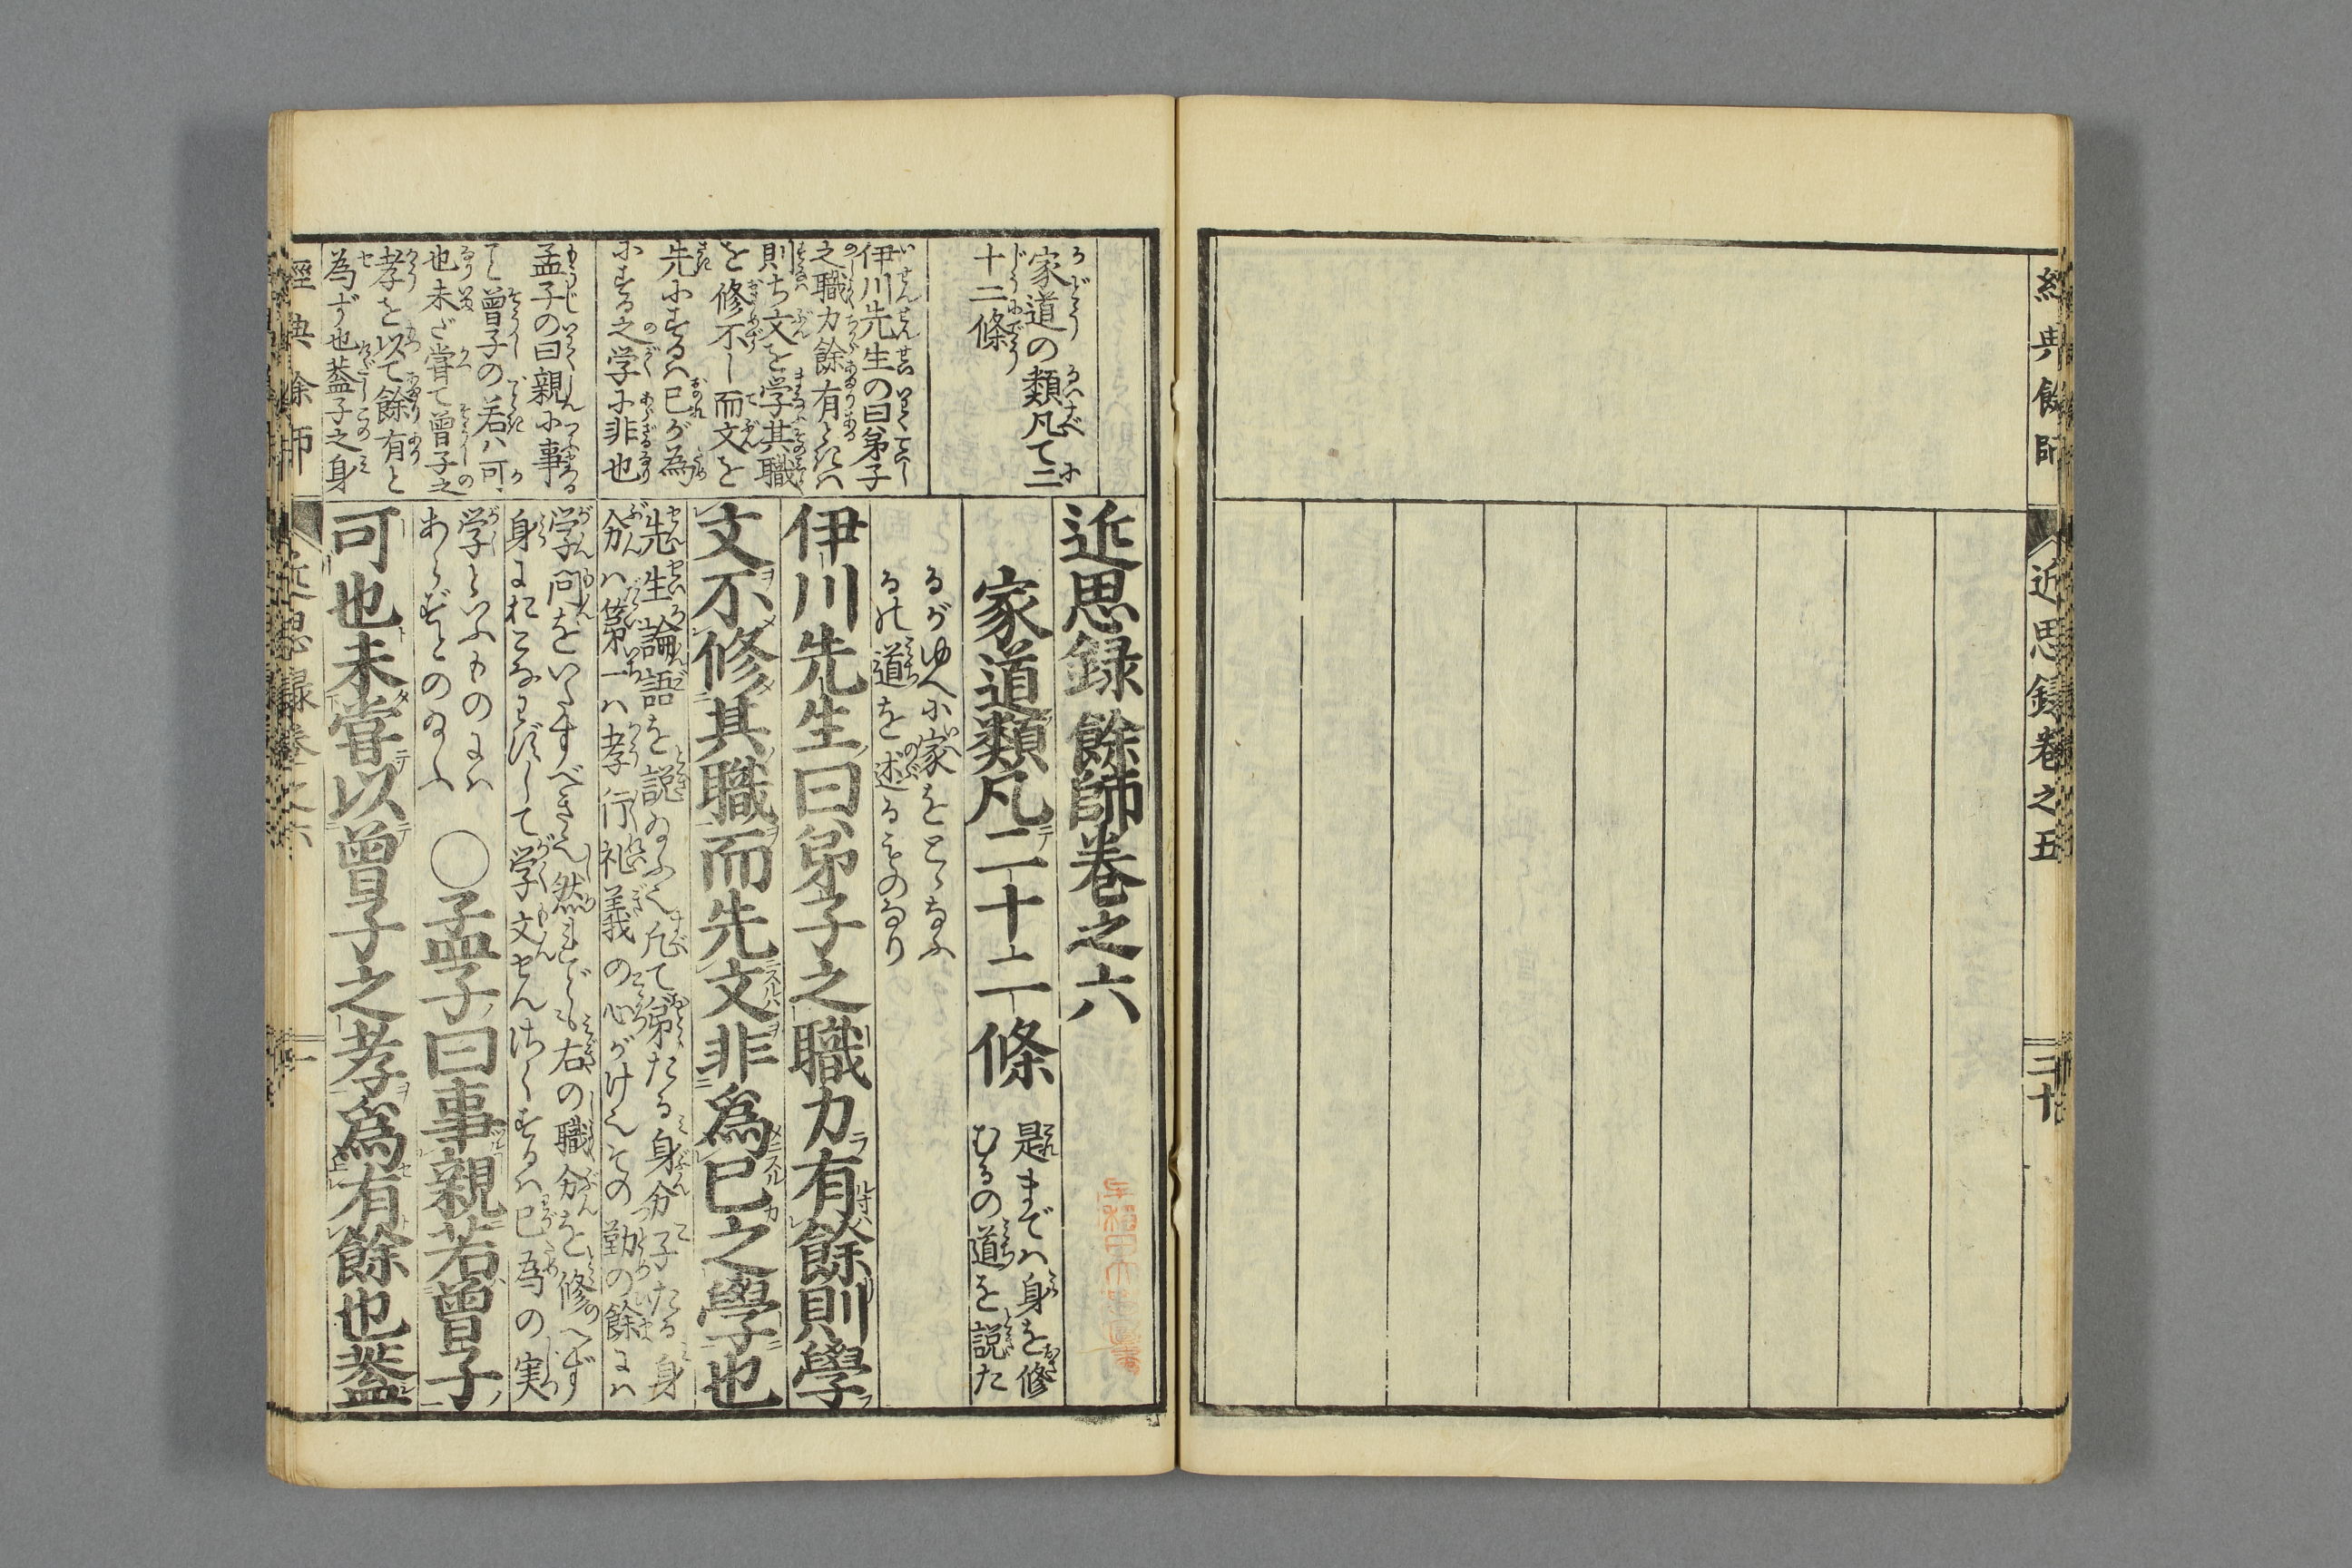 經典餘師
近思録卷之五
二十
家道の類凡て二
十二條
伊川先生の曰弟子
之職力餘有ときハ
則ち文を学其職
を修不して而文を
先にするハ己が為
にする之学に非也
孟子の曰親に事
て曽子の若ハ可
也未だ嘗て曽子之
孝を以て餘有と
為ず也葢子之身
近思録 餘師卷之六
家道類凡二十二條
是までハ身を修
むるの道を説た
るがゆへに家をとゝなふ
るの道を述るものなり
伊川先生曰弟子之職力有餘則學
文不修其職而先文非爲已之學也
先生論語を説ゐふて凡て弟たる身分子たる身
分ハ第一ハ孝行礼義の心がけてその勤の餘にハ
学問をいたすべきて然れども右の職分を修へず
身におこなわずして学文せんはらくするハ已為の実
学といふものにハ
あらずとのゐふ
○孟子曰事親若曾子
可也未甞以曾子之孝爲有餘也葢
經典餘師
近思録卷之六
一